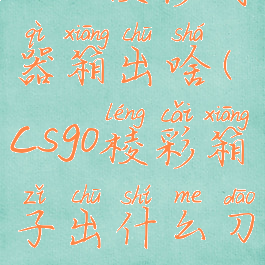 qì xiāng chū shá
器箱出啥(
léng cǎi xiāng
csgo棱彩箱
zǐ chū shí me dāo
子出什么刀